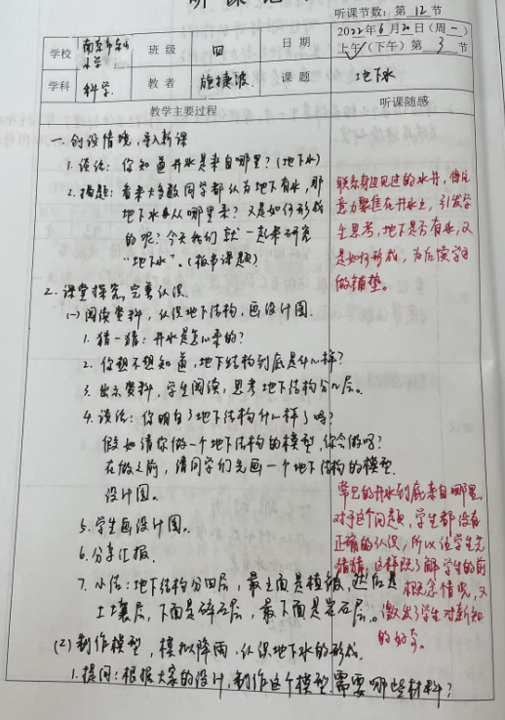 听课记
听课节数：第 12 节
学校 南京市东山小学 班级 四 日期 2022年6月20日（周一）
上午（下午）第 3 节
学科 科学 教者 施捷波 课题 地下水
教学主要过程 听课随感
一.创设情境，导入新课
1.谈话：你知道井水是来自哪里？（地下水）
2.揭题：看来大多数同学都认为地下有水，那
地下水从哪里来？又是如何形成
的呢？今天我们就一起来研究
“地下水”。（板书课题）
2.课堂探究，完善认识.
(一)阅读资料，认识地下结构，画设计图.
1.猜一猜：井水是怎么来的？
2.你想不想知道，地下结构到底是什么样？
3.出示资料，学生阅读，思考地下结构分几层。
4.谈话：你明白了地下结构什么样了吗？
假如请你做一个地下结构的模型，你会做吗？
在做之前，请同学们先画一个地下结构的模型
设计图。
5.学生画设计图。
6.分享汇报.
7.小结：地下结构分四层，最上面是植被，然后是
土壤层，下面是碎石层，最下面是岩石层。
(2)制作模型，模拟降雨，认识地下水的形成.
1.提问：根据大家的设计，制作这个模型需要哪些材料？
联系身边见过的水井，将注
意力聚焦在井水上，引发学
生思考，地下是否有水，又
是如何形成，为后续学习
做铺垫。
常见的井水到底来自哪里，
对于这个问题，学生都没有
正确的认识，所以让学生先
猜猜，这样既了解学生的前
概念情况，又
激发了学生对新知
的好奇。